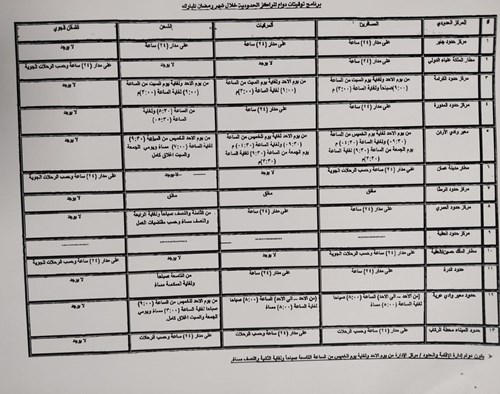 برنامج توقيتات دوام المراكز الحدودية خلال شهر رمضان المبارك
# المركز الحدودي المسافرين المركبات الشحن الشحن الجوي
١ مركز حدود جابر على مدار (٢٤) ساعة على مدار (٢٤) ساعة على مدار (٢٤) ساعة لا يوجد
٢ مطار الملكة علياء الدولي على مدار (٢٤) ساعة لا يوجد لا يوجد على مدار (٢٤) ساعة وحسب الرحلات الجوية
٣ مركز حدود الكرامة من يوم الاحد ولغاية يوم السبت من الساعة من يوم الاحد ولغاية يوم السبت من الساعة من يوم الاحد ولغاية يوم السبت من الساعة لا يوجد
(٩:٠٠) صباحا ولغاية الساعة (٣:٠٠) م (٩:٠٠) ولغاية الساعة (٣:٠٠)م (٩:٠٠) ولغاية الساعة (٣:٠٠)م
٤ مركز حدود المدورة على مدار (٢٤) ساعة على مدار (٢٤) ساعة من الساعة ولغاية الساعة لا يوجد
٥ معبر وادي الأردن من يوم الاحد ولغاية يوم الخميس من الساعة من يوم الاحد ولغاية يوم الخميس من الساعة من يوم الاحد الخميس من الساعة (٩:٣٠) لا يوجد
يوم الجمعة من الساعة (٩:٣٠) يوم الجمعة من الساعة (٩:٣٠) ولغاية الساعة ويومي الجمعة
لغاية الساعة لغاية الساعة والسبت اغلاق كامل
٦ مطار مدينة عمان على مدار (٢٤) ساعة لا يوجد لا يوجد على مدار (٢٤) ساعة وحسب الرحلات الجوية
٧ مركز حدود الرمثا مغلق مغلق مغلق لا يوجد
٨ مركز حدود العمري على مدار (٢٤) ساعة على مدار (٢٤) ساعة من الثامنة والنصف صباحا ولغاية الرابعة لا يوجد
والنصف مساء وحسب مقتضيات العمل
٩ مركز حدود العقبة
١٠ مطار الملك حسين/العقبة على مدار (٢٤) ساعة وحسب الرحلات الجوية لا يوجد لا يوجد على مدار (٢٤) ساعة وحسب الرحلات الجوية
١١ حدود الدرة على مدار (٢٤) ساعة على مدار (٢٤) ساعة من التاسعة صباحا لا يوجد
ولغاية مساء
١٢ حدود معبر وادي عربة (من الاحد – الى الاحد) الساعة (٨:٠٠) صباحا (من الاحد – الى الاحد) الساعة (٨:٠٠) صباحا من يوم الاحد الخميس من الساعة (٩:٠٠) لا يوجد
لغاية الساعة (٨:٠٠) مساء لغاية الساعة (٨:٠٠) مساء صباحا لغاية الساعة (٣:٠٠) مساء ويومي
الجمعة والسبت اغلاق كامل
١٣ حدود الميناء محطة الركاب على مدار (٢٤) ساعة وحسب الرحلات على مدار (٢٤) ساعة وحسب الرحلات على مدار (٢٤) ساعة وحسب الرحلات لا يوجد
يكون دوام إدارة الإقامة والحدود / مركز الإدارة من يوم الاحد ولغاية يوم الخميس من الساعة التاسعة صباحا ولغاية الثانية والنصف مساء